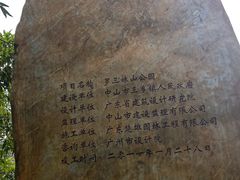 项目名称 罗三妹山公园
建设单位 中山市三乡镇人民政府
设计单位 广东省建筑设计研究院
监理单位 中山市建设监理有限公司
施工单位 广东楚雄园林工程有限公司
咨询单位 广州市设计院
竣工时间 二〇一一年一月二十八日